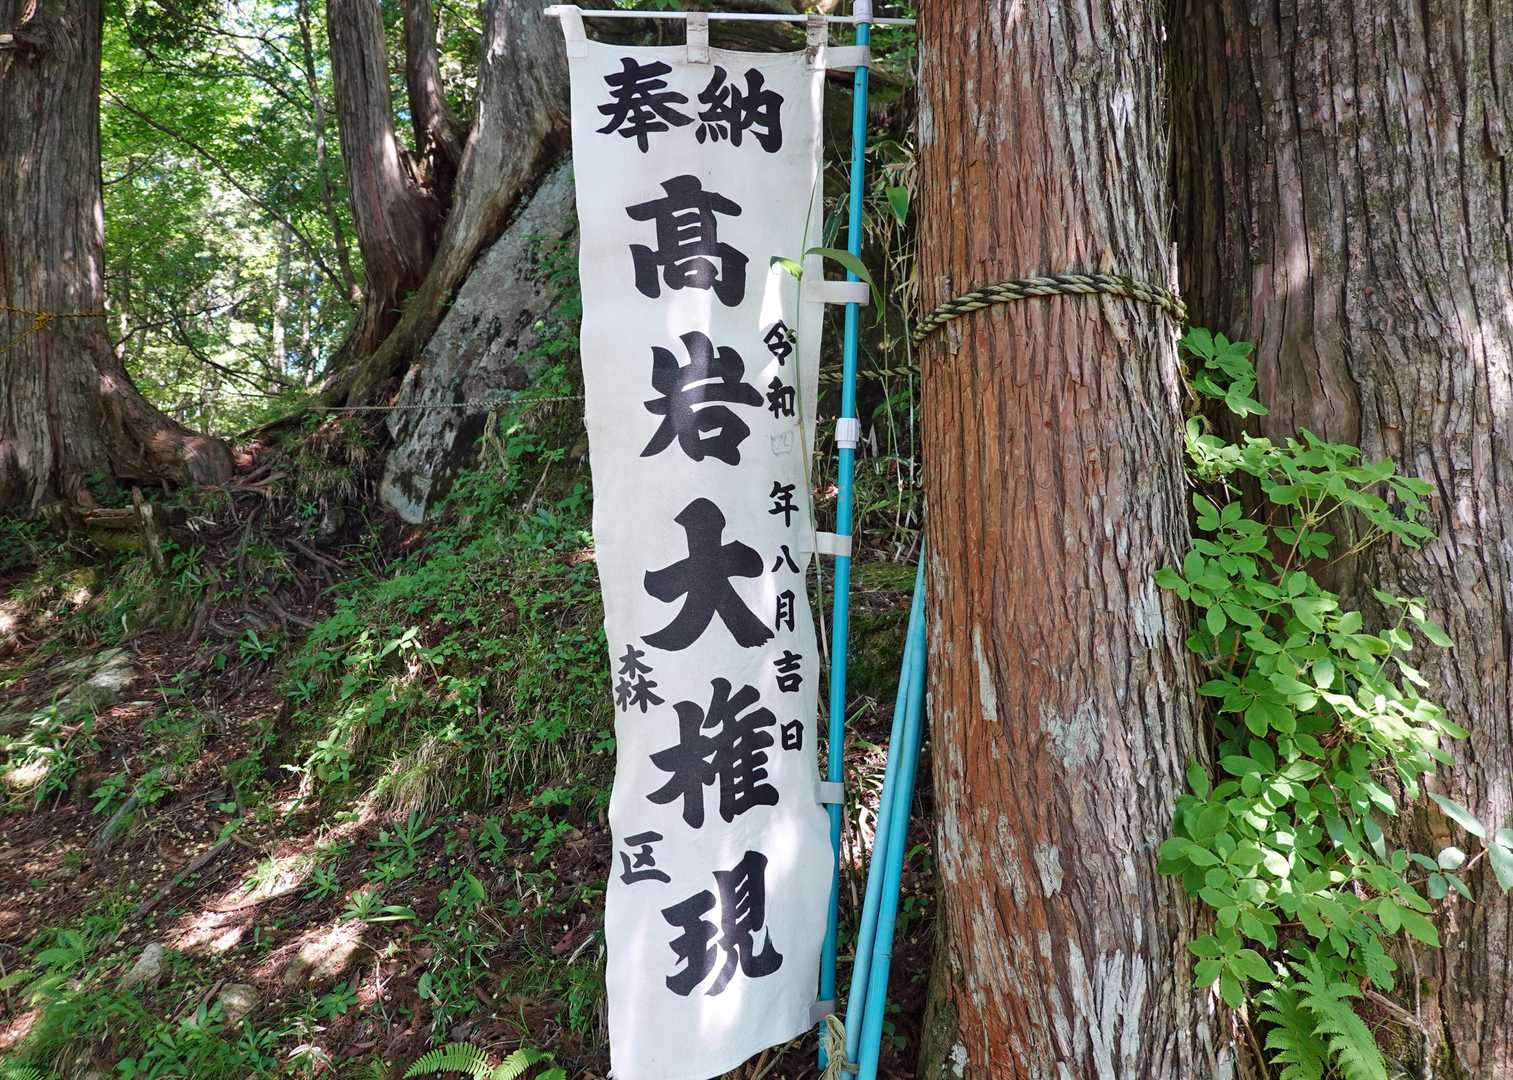 奉納
髙岩大権現
令和四年八月吉日
森区